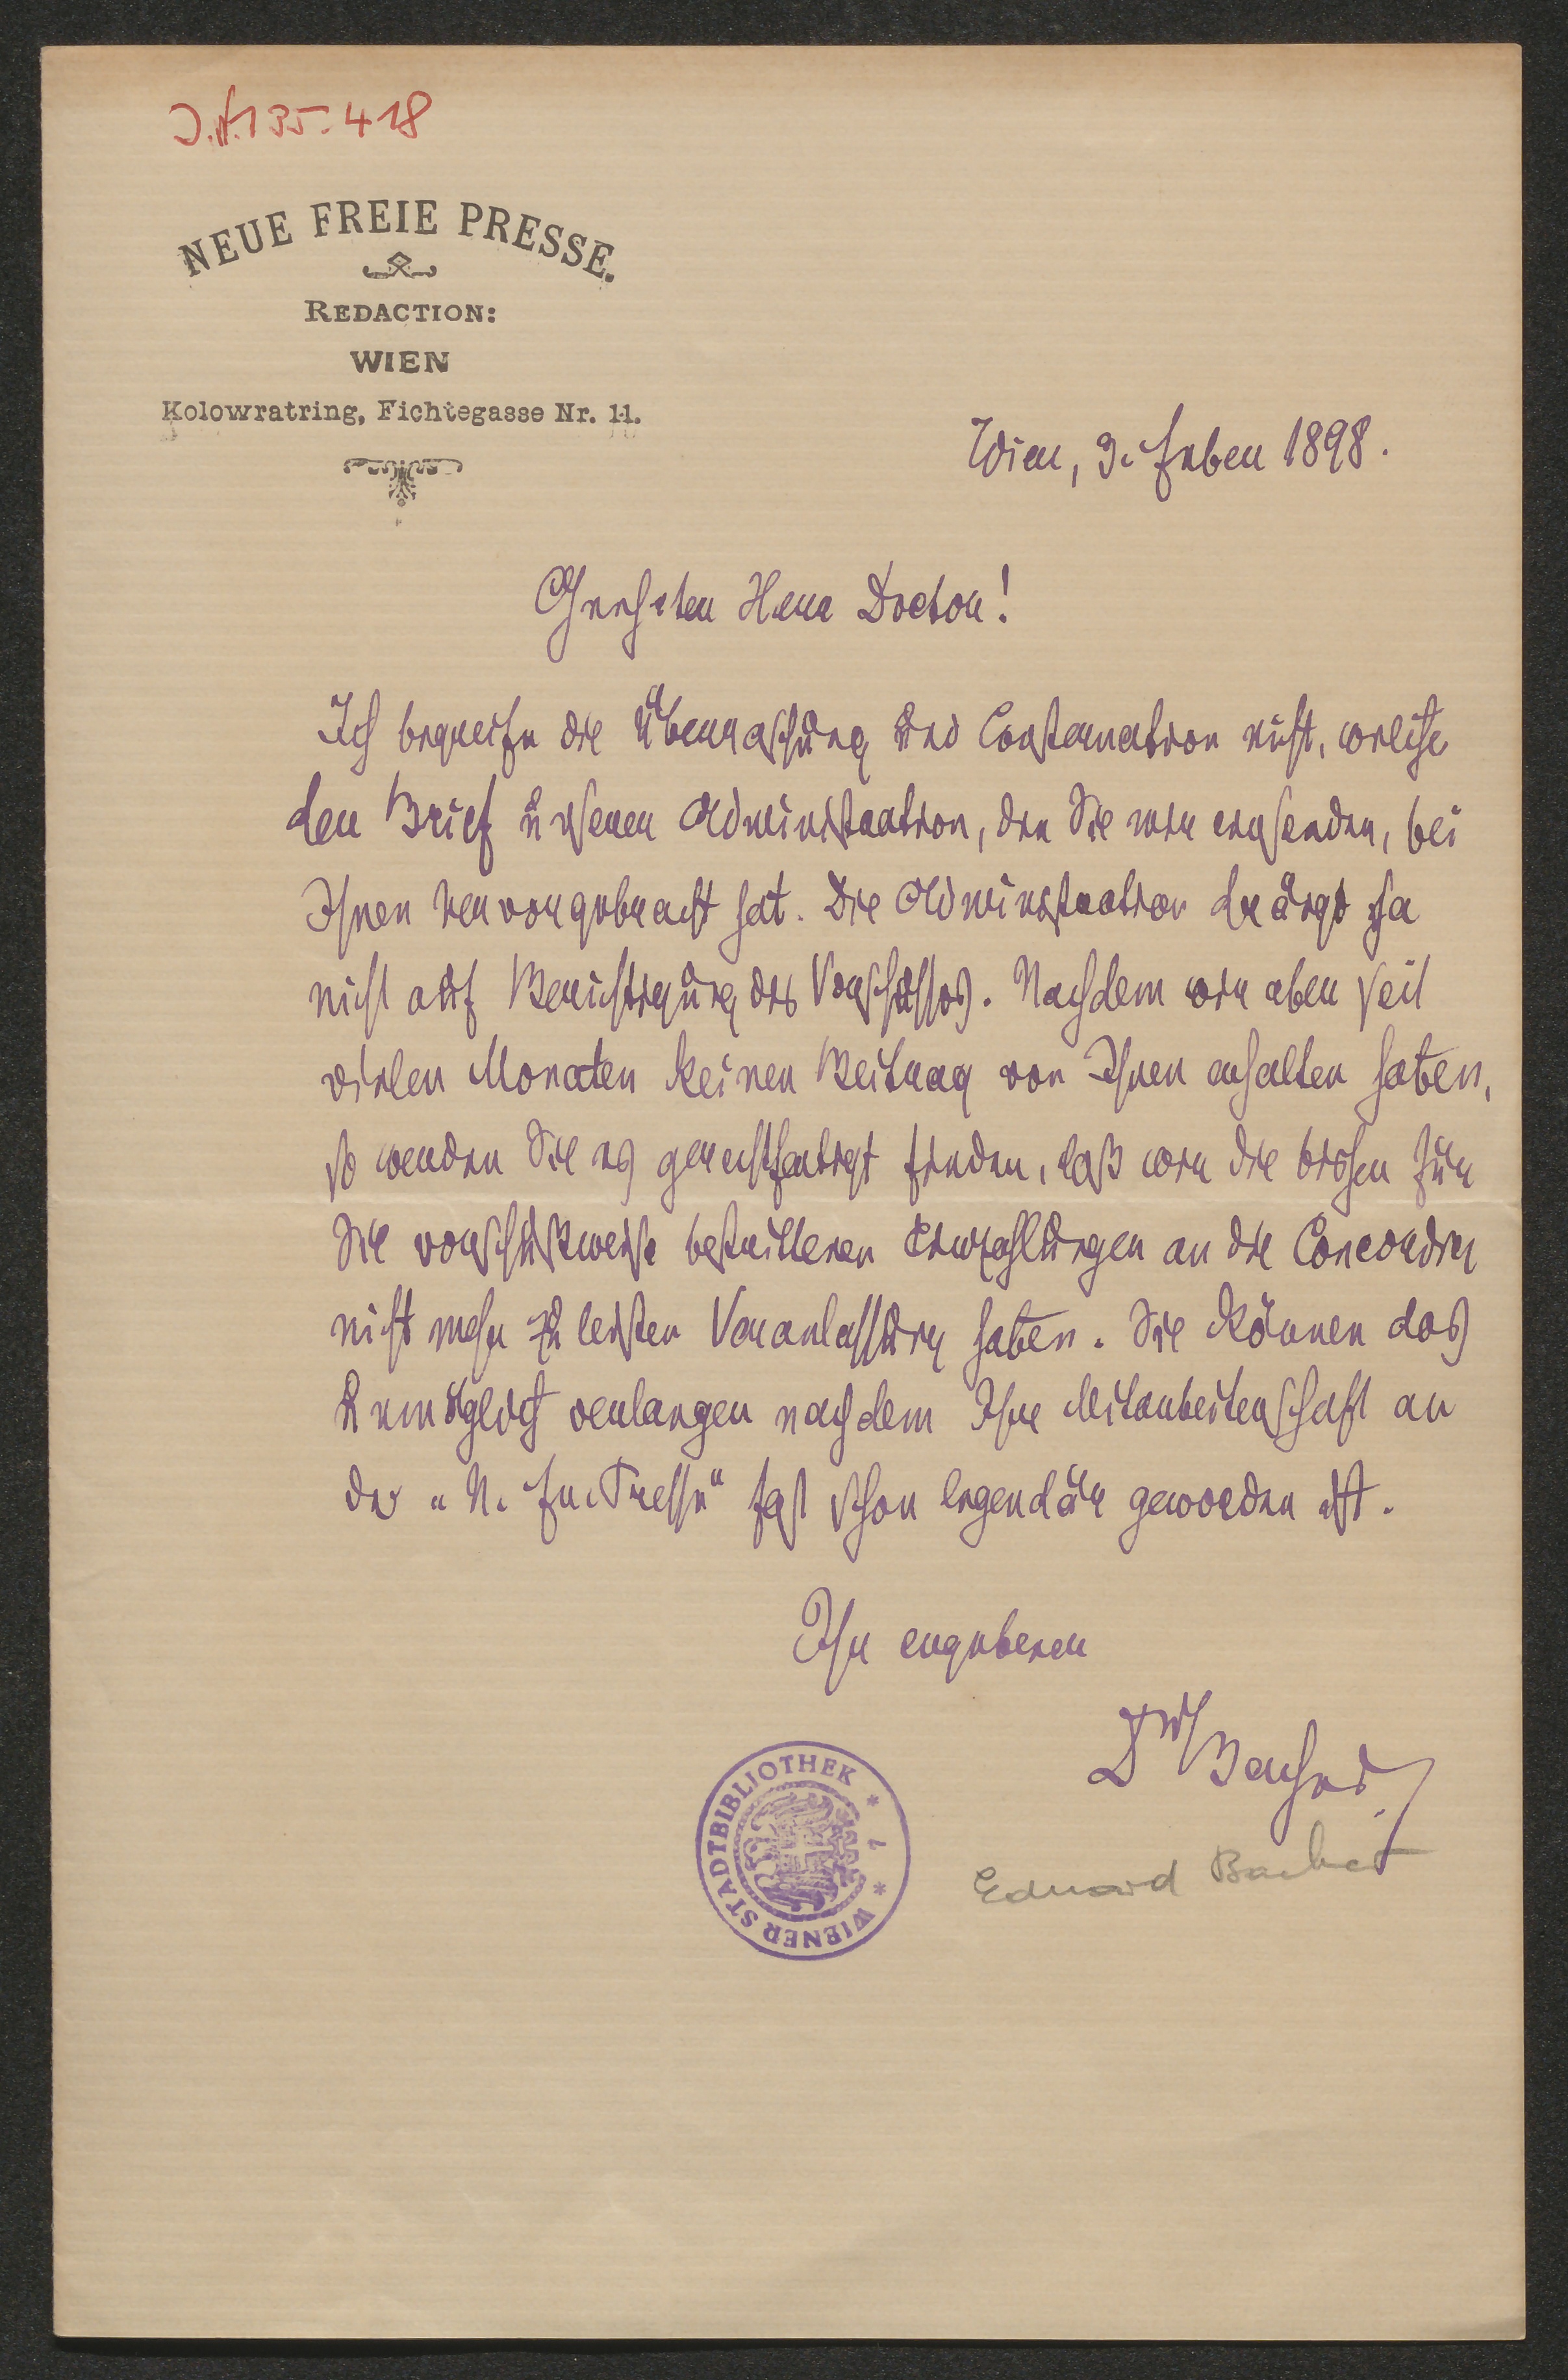 J.N. 135.418
NEUE FREIE PRESSE.
REDACTION:
WIEN
Kolowratring, Fichtegasse Nr. 11.
Wien, 3. Feber 1898.
Geehrter Herr Doctor!
Ich begreife die Überraschung und Consternation nicht, welche
der Brief unserer Administration, den Sie mir einsenden, bei
Ihnen hervorgebracht hat. Die Administration drängt ja
nicht auf Berichtigung des Vorschusses. Nachdem wir aber seit
vielen Monaten keinen Beitrag von Ihnen erhalten haben,
so werden Sie es gerechtfertigt finden, daß wir die bisher für
Sie vorschußweise bestrittenen Einzahlungen an die Concordia
nicht mehr zu leisten Veranlassung haben. Sie können das
unmöglich verlangen nachdem Ihre Mitarbeiterschaft an
der „N. Fr. Presse“ fast schon legendär geworden ist.
Ihr ergebener
Dr Bacher
Eduard Bacher
WIENER STADTBIBLIOTHEK * 1 *